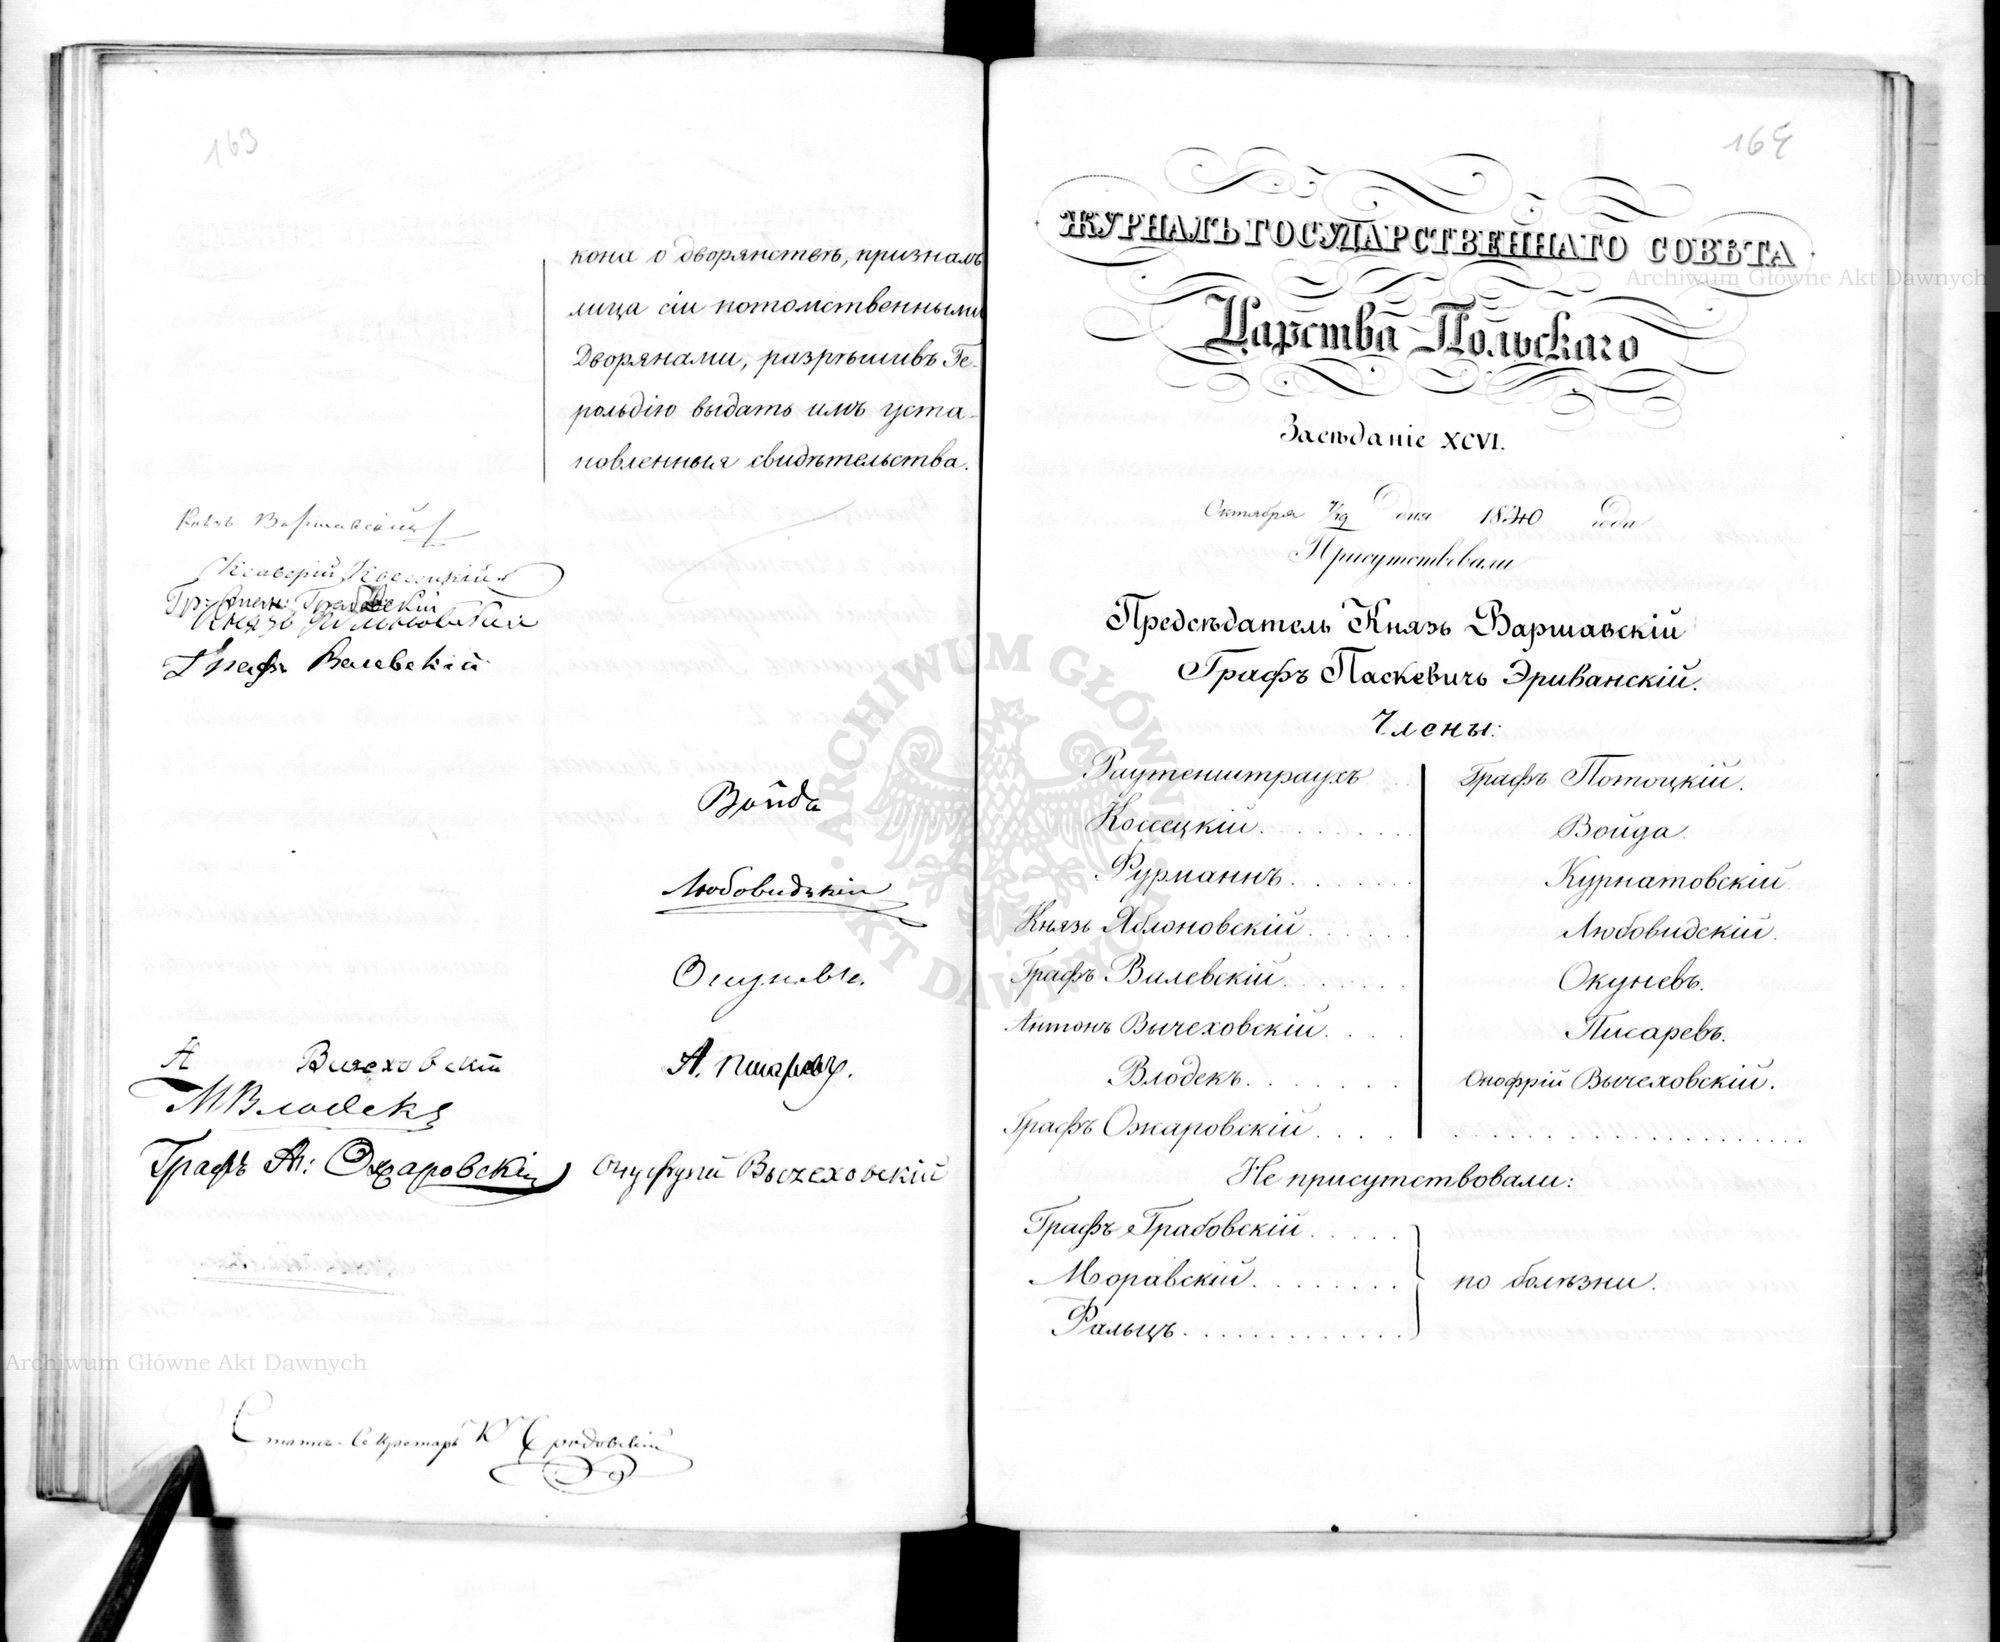 163
кона о дворянствѣ, призналъ
лица сіи потомственными
Дворянами, разрѣшивъ Ге-
рольдію выдать имъ уста-
новленныя свидѣтельства.
Князь Варшавскій
Ксаверій Коссецкій
Гр: Стан: Грабовскій
Князь Яблоновскій
Графъ Валевскій
Войда
Любовидзкій
Окуневъ
А Вычеховскій
А. Писаревъ.
М Влодекъ
Графъ Ад: Ожаровскій
Онуфрій Вычеховскій
Статсъ-Секретарь
Archiwum Główne Akt Dawnych
164
ЖУРНАЛЪ ГОСУДАРСТВЕННАГО СОВѢТА
Царства Польскаго
Archiwum Główne Akt Dawnych
Засѣданіе XCVI.
Октября 7/19 дня 1840 года
Присутствовали
Предсѣдатель Князь Варшавскій
Графъ Паскевичъ Эриванскій.
Члены:
Раутенштраухъ . .
Коссецкій . . . . . . . .
Фурманнъ . . . . . . .
Князь Яблоновскій . . . . . .
Графъ Валевскій . . . . . . .
Антонъ Вычеховскій . . . .
Влодекъ . . . . . . . .
Графъ Ожаровскій . . . . .
Графъ Потоцкій.
Войда.
Курнатовскій.
Любовидскій.
Окуневъ.
Писаревъ.
Онофрій Вычеховскій.
Не присутствовали:
Графъ Грабовскій . . . . .
Моравскій . . . . . . . .
Фальцъ . . . . . . . . . . . .
по болѣзни.
ARCHIWUM GŁÓWNE AKT DAWNYCH